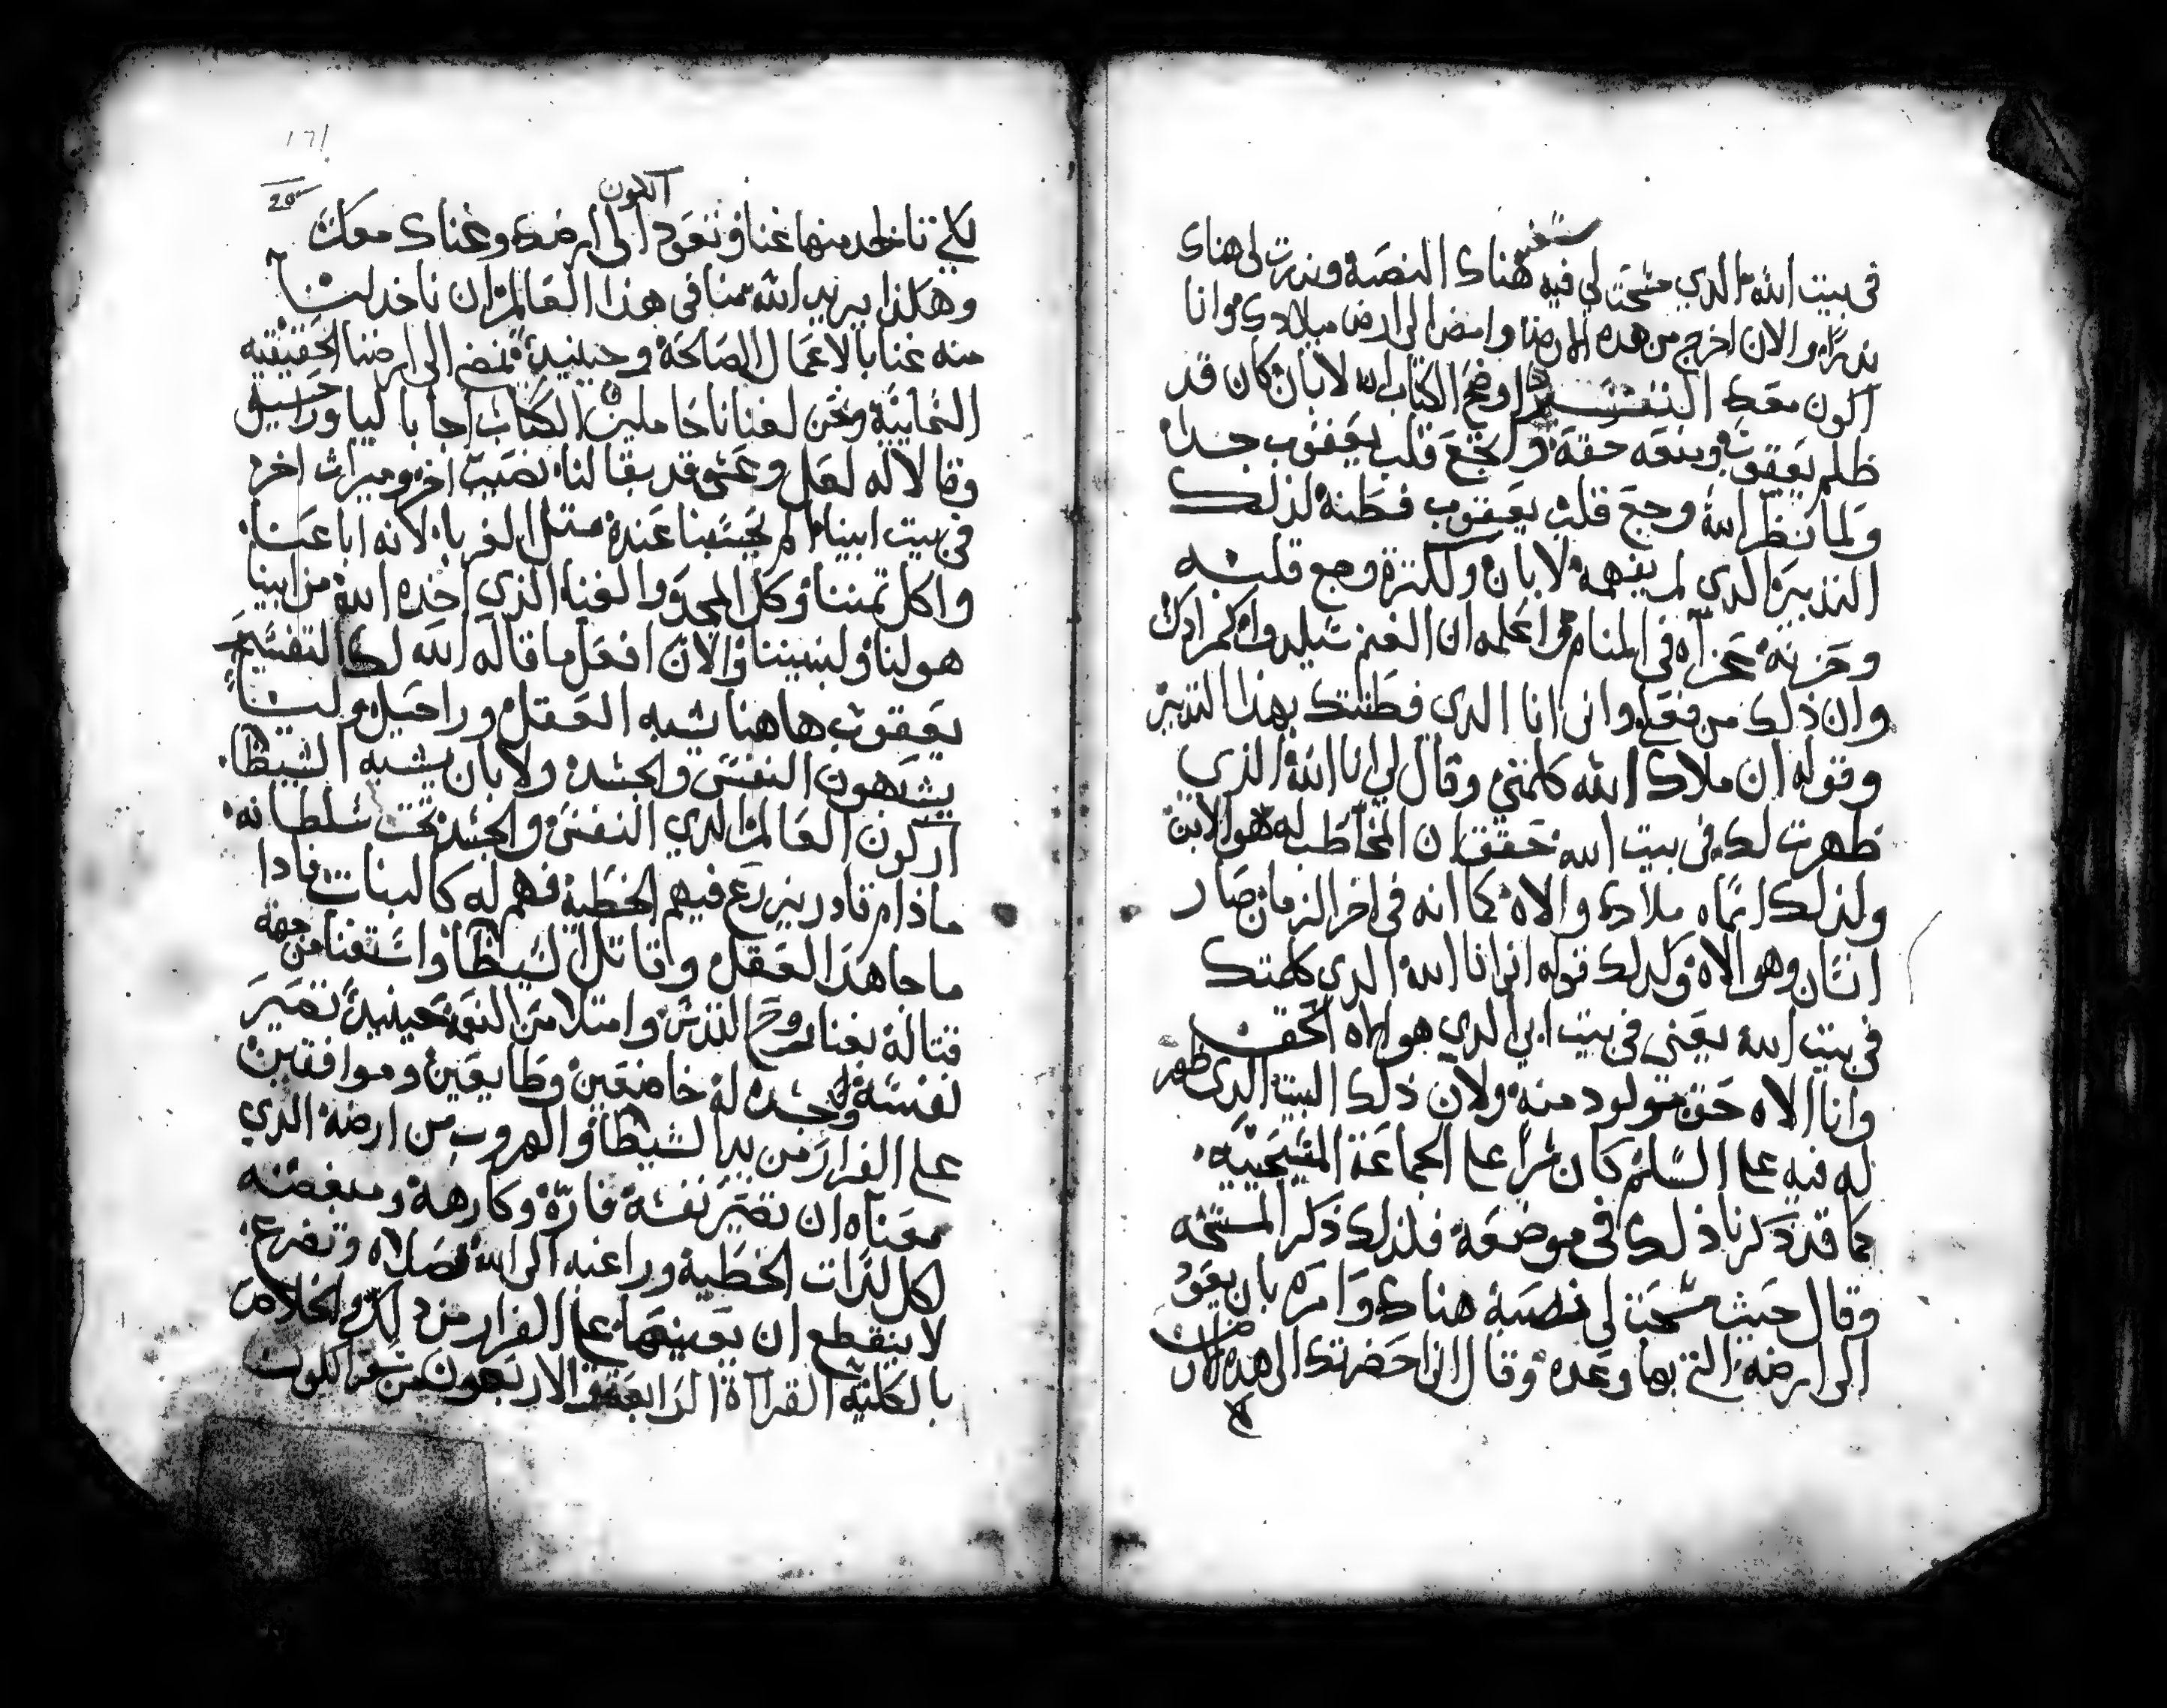 سفر
في بيت الله الذي مسحت لي فيه هناك النصبة ونذرت لي هناك
نذرا والان اخرج من هده الارض وامضا الى ارض ميلادك وانا
اكون معك التفسير اوضح الكتاب انه لابان كان قد
ظلم يعقوب ومنعه حقه واوجع قلب يعقوب جدا
ولما نظر الله وجع قلب يعقوب فطنه لذلك
التدبير الدي لم يفهمه لابان ولكترة وجع قلبه
وحزنه عزاه في المنام واعلمه ان الغنم تيلد
وان ذلك من فعله واني انا الدي فطنتك بهذا التدبير
وقوله ان ملاك الله كلمني وقال لي انا الله الذي
ظهرت لك في بيت الله حقق ان المخاطب له هو الابن
ولذلك اسماه ملاك والاه كما انه في اخر الزمان صار
انسان وهو الاه وكدلك قوله اني انا الله الدي كلمتك
في بيت الله يعني في بيت ابي الدي هو الاه الحق
وانا الاه حق مولود منه ولان ذلك البيت الدي ظهر
له فيه على السلم كان سرا على الجماعة المسيحية
كما قد ذكرنا ذلك في موضعه فلذلك ذكر المسحه
وقال حيث مسحت لي نصبة هناك وامره بان يعود
الى ارضه التي بها وعده وقال اني احضرتك الى هده الارض
التكون
لكي تاخد منها غنا وتعود الى ارضك وغناك معك
وهكذا يريد الله منا في هذا العالم ان ناخد لنا
منه غنا بالاعمال الصالحة وحينيد نمضي الى ارضنا الحقيقيه
السماييه ونحن لغنانا حاملين الكتاب اجابا ليا وراحيل
وقالا له لعل وعسى قد بقا لنا نصيب اخر وميرات اخر
في بيت ابينا الم يحسبنا عنده متل الغربا لانه اباعنا
واكل تمننا وكل المجد والغنا الذي اخده الله من ابينا
هو لنا ولبنيننا والان افعل ما قاله الله لك التفسير
يعقوب هاهنا يشبه العقل وراحيل وليا
يشبهون النفس والجسد ولابان يشبه الشيطان
اركون العالم الدي النفس والجسد تحت سلطانه
ماذام قادر يزرع فيهم الخطية فهم له كالبنات فادا
ما جاهد العقل وقاتل الشيطان واستغنا من جهة
قتاله بغنا روح القدس وامتلا من النعمة حينيد تصير
نفسه وجسده له خاضعين وطايعين وموافقين
على الفرار من يد الشيطان والهروب من ارضه الدي
معناه ان تصير نفسه فارة وكارهة ومبغضه
لكل لذات الخطية وراغبه الى الله بصلاه وتضرع
لا ينقطع ان يعينها على الفرار من والخلاص
بالكلية القراة الرابعة والاربعون من سفر التكوين